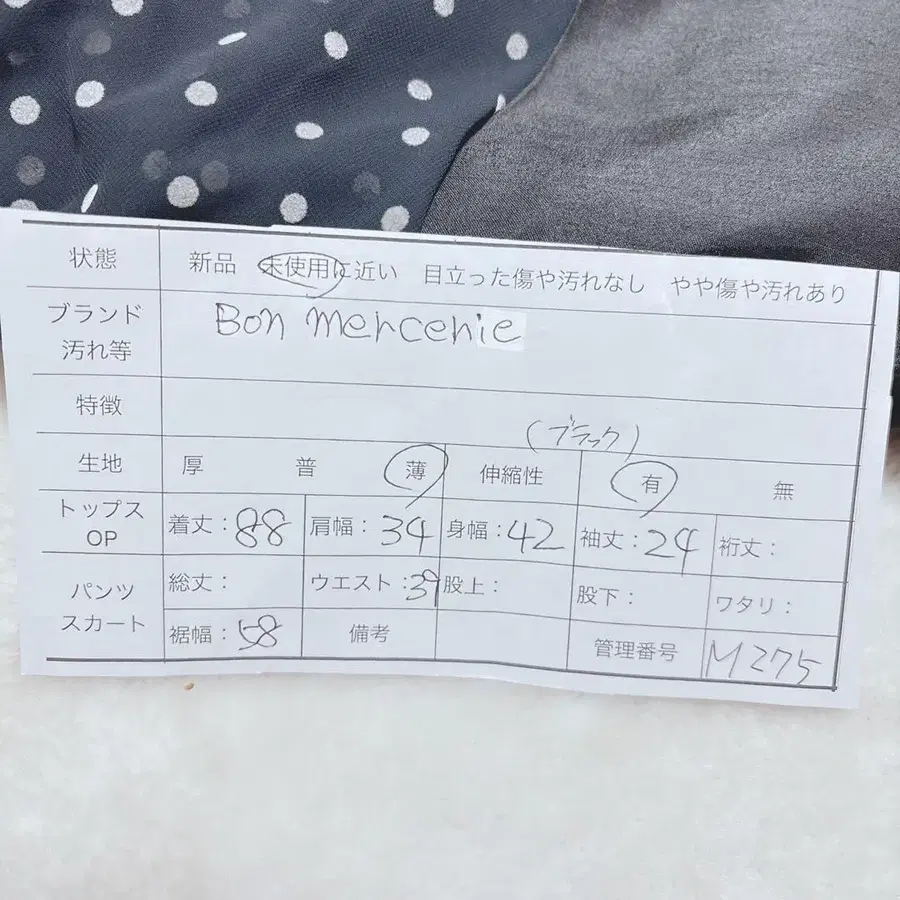 状態 新品 未使用に近い 目立った傷や汚れなし やや傷や汚れあり
ブランド
汚れ等
Bon mercerie
特徴
(ブラック)
生地 厚 普 薄 伸縮性 有 無
トップス
OP
着丈:88 肩幅:34 身幅:42 袖丈:24 裄丈:
パンツ
スカート
総丈: ウエスト:39 股上: 股下: ワタリ:
裾幅:58 備考 管理番号 M275